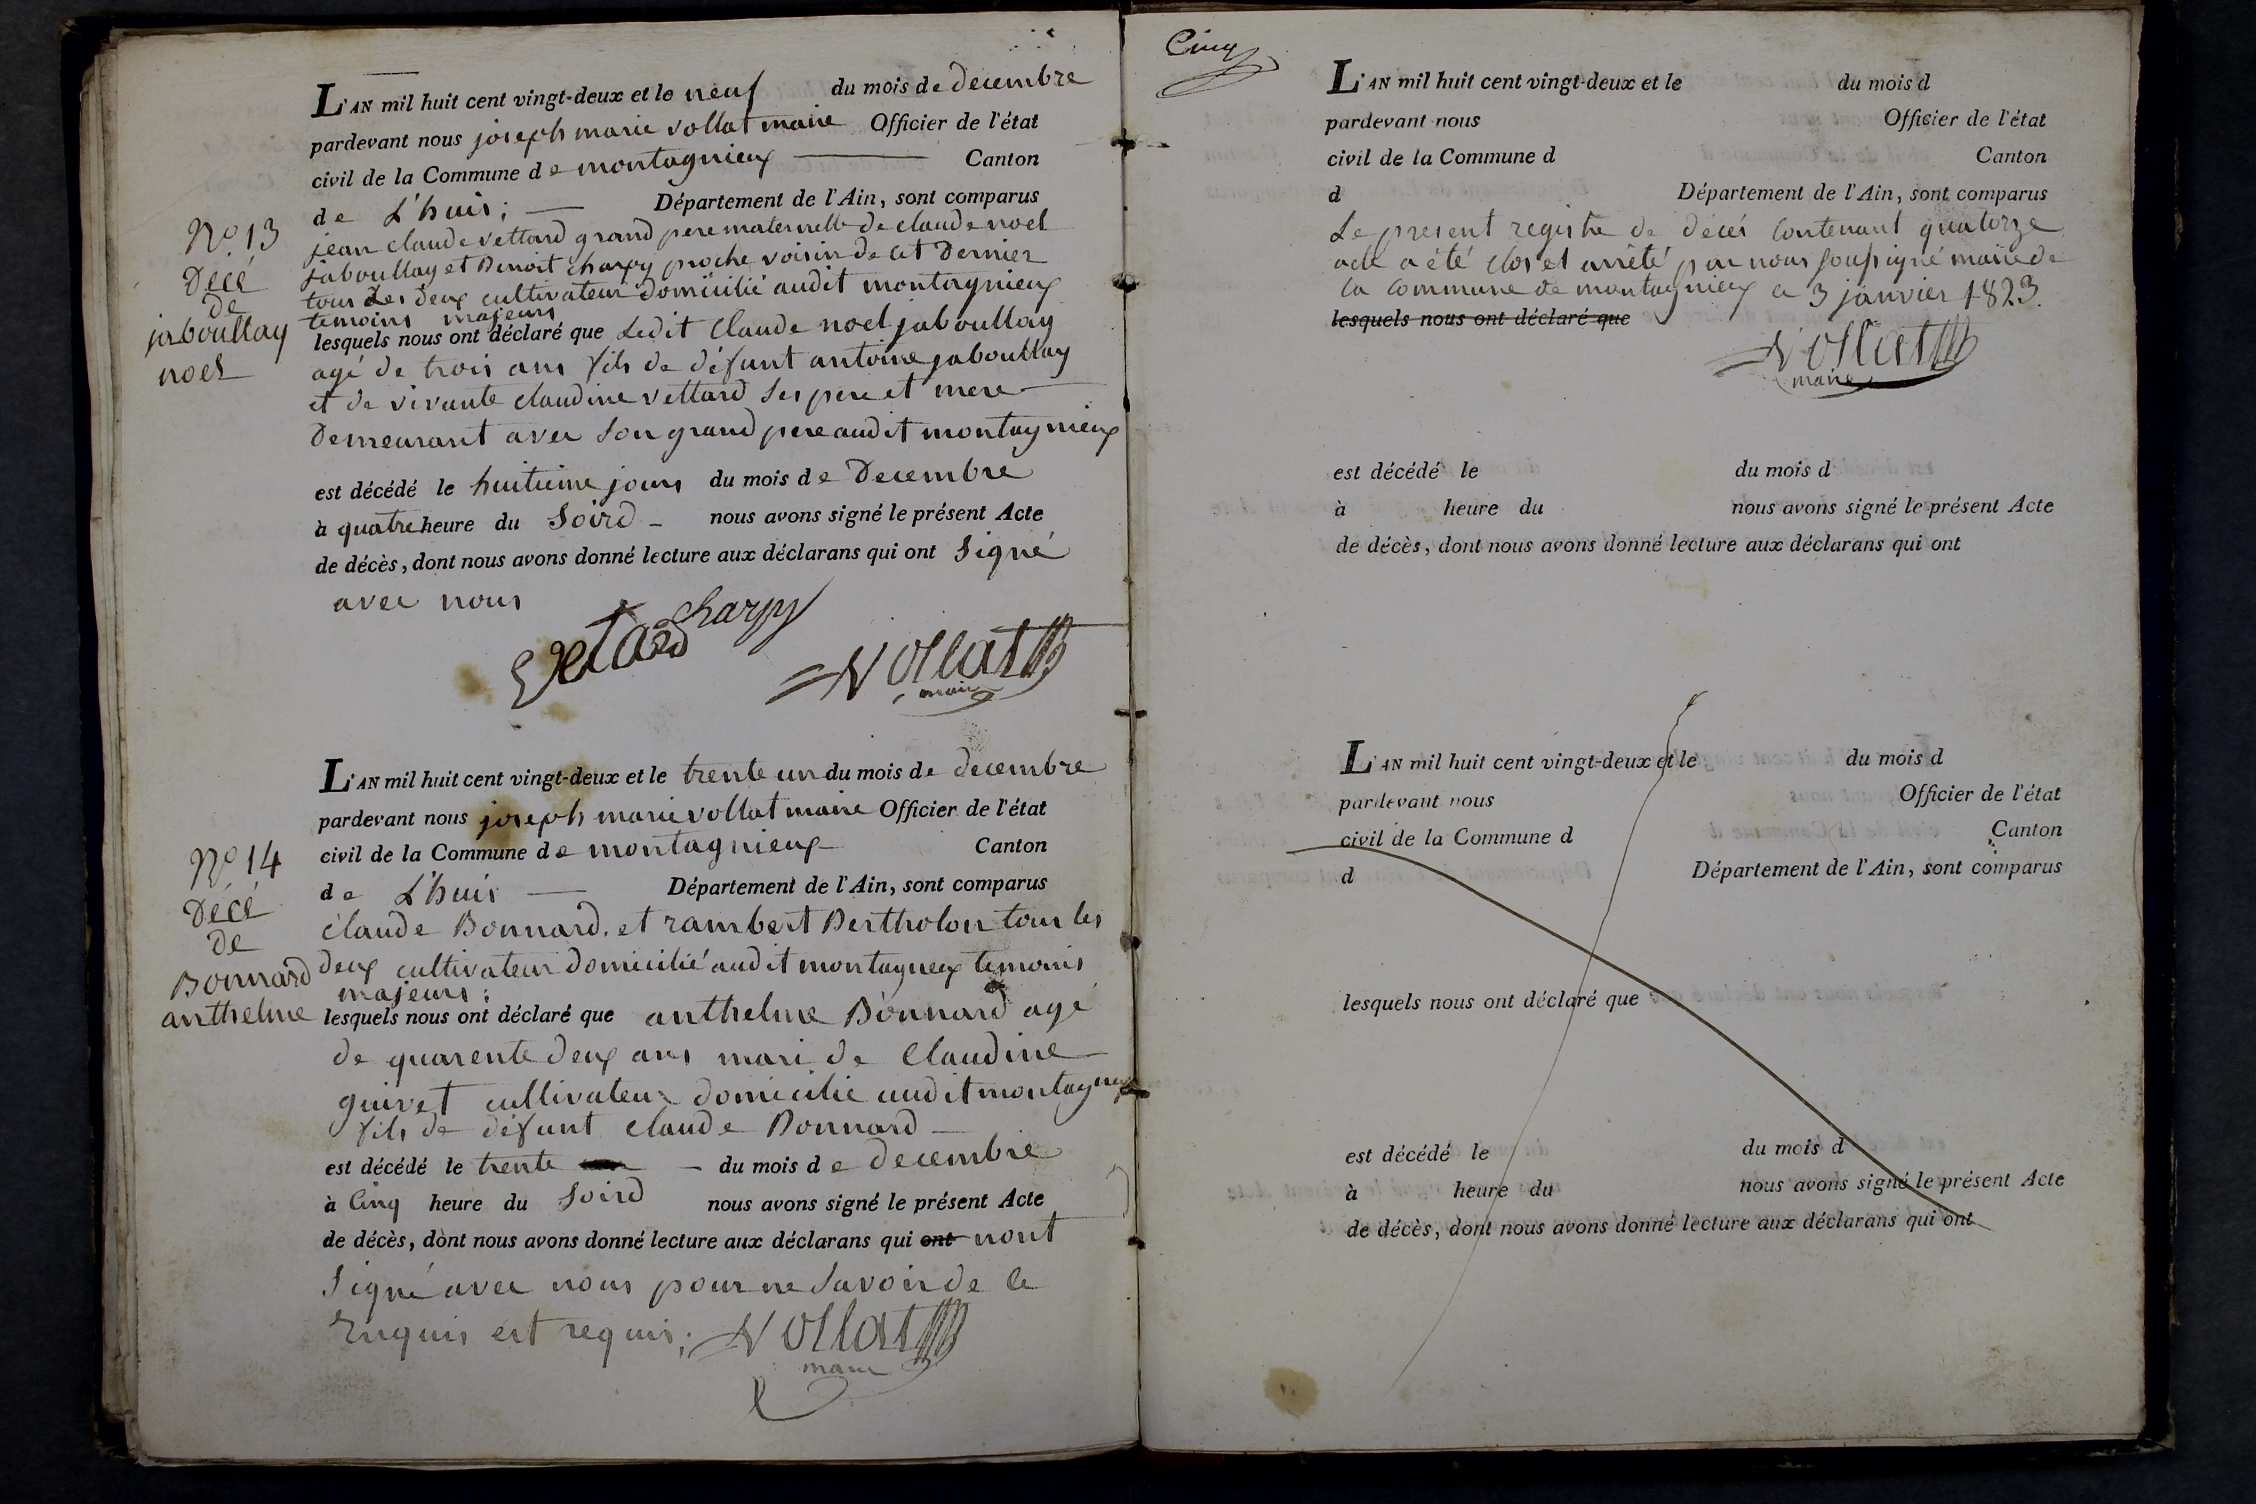 L'AN mil huit cent vingt-deux et le neuf du mois de decembre
pardevant nous joseph marie vollat maire Officier de l'état
civil de la Commune de montagnieux Canton
de L'huis; Département de l'Ain, sont comparus
N.º 13
Décé
de
jaboullay
noel
jean claude vettard grand pere maternelle de claude noel
jaboullay et Benoit charpy proche voisin de cet Dernier
tous Les deux cultivateur domicilié audit montagnieux
temoins majeurs
lesquels nous ont déclaré que Ledit Claude noel jaboullay
agé de trois ans fils de défunt antoine jaboullay
et de vivante claudine vettard ses pere et mere
Demeurant avec son grand pere audit montagnieux
est décédé le huitieme jours du mois de Decembre
à quatre heure du Soird nous avons signé le présent Acte
de décès, dont nous avons donné lecture aux déclarans qui ont Signé
avec nous
charpy
Vetard
Vollat
maire
L'AN mil huit cent vingt-deux et le trente un du mois de decembre
pardevant nous joseph marie vollat maire Officier de l'état
civil de la Commune de montagnieux Canton
de L'huis Département de l'Ain, sont comparus
N.º 14
Décé
de
Bonnard
anthelme
claude Bonnard. et rambert Bertholon tous les
deux cultivateur domicilié audit montagnieux temoins
majeurs;
lesquels nous ont déclaré que anthelme Bonnard agé
de quarente deux ans mari de Claudine
guivet cultivateur domicilié audit montagnieux
fils de défunt claude Bonnard
est décédé le trente du mois de decembre
à Cinq heure du Soird nous avons signé le présent Acte
de décès, dont nous avons donné lecture aux déclarans qui ont nont
Signé avec nous pour ne Savoir de ce
Enquis et requis;
Vollat
maire
Cinq
L'AN mil huit cent vingt-deux et le du mois d
pardevant nous Officier de l'état
civil de la Commune d Canton
d Département de l'Ain, sont comparus
Le present registre de décés Contenant quatorze
acte a été clos et arrêté par nous soussigné maire de
la commune de montagnieux ce 3 janvier 1823.
lesquels nous ont déclaré que
Vollat
maire
est décédé le du mois d
à heure du nous avons signé le présent Acte
de décès, dont nous avons donné lecture aux déclarans qui ont
L'AN mil huit cent vingt-deux et le du mois d
pardevant nous Officier de l'état
civil de la Commune d Canton
d Département de l'Ain, sont comparus
lesquels nous ont déclaré que
est décédé le du mois d
à heure du nous avons signé le présent Acte
de décès, dont nous avons donné lecture aux déclarans qui ont